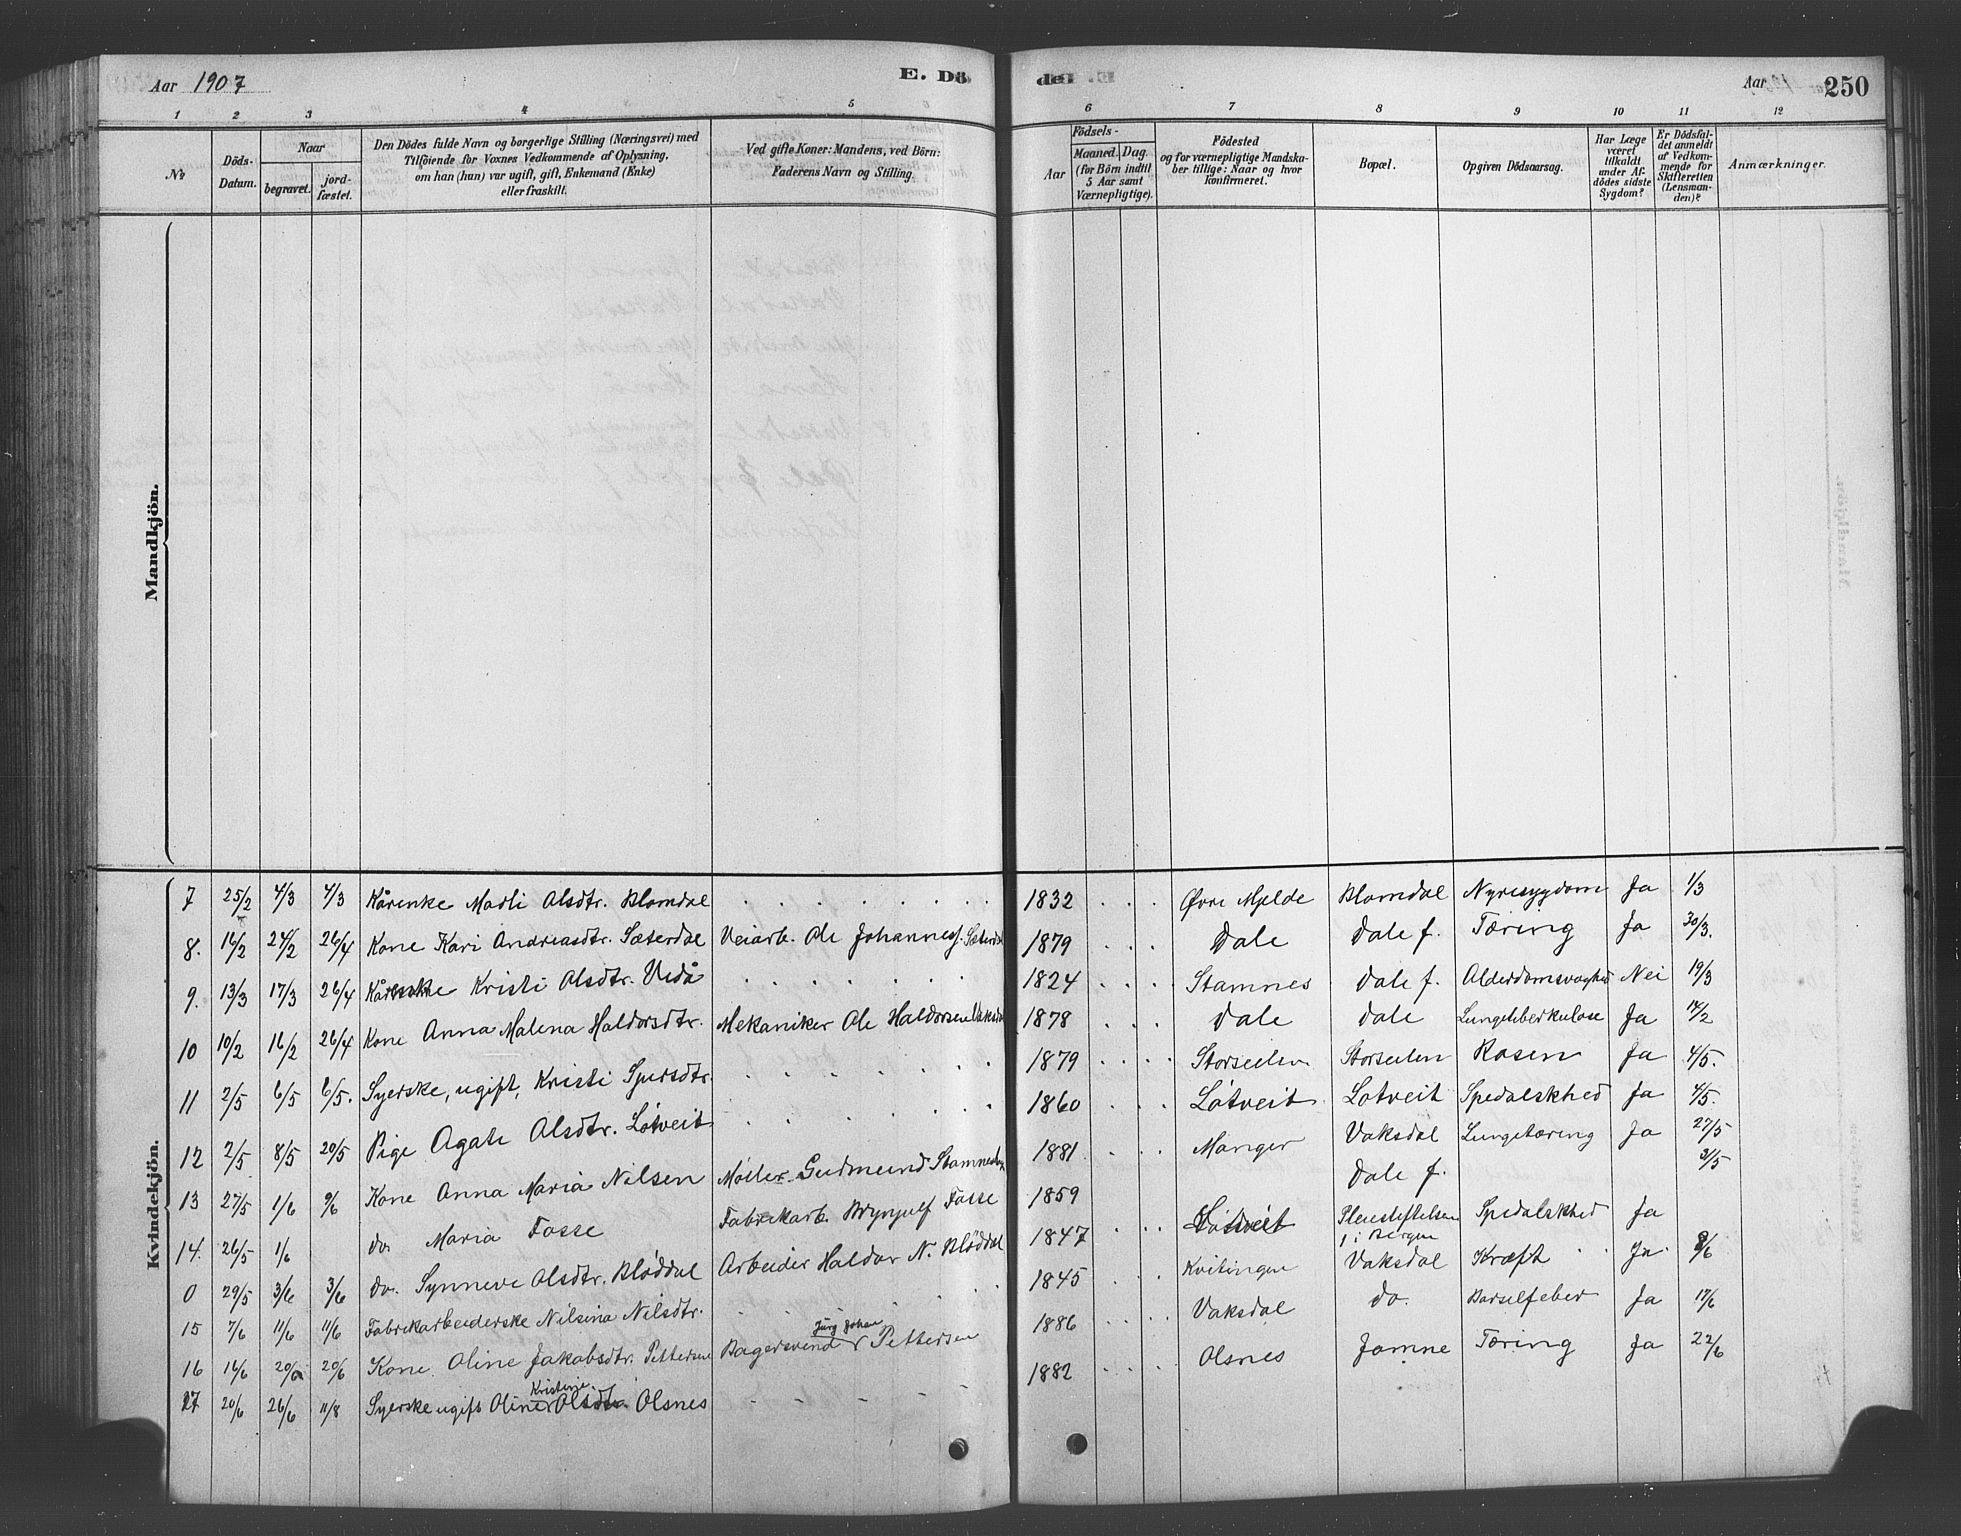 Aar 1907 E. Dö
del Aar 250
1 2 3 4 5 6 7 8 9 10 11 12
No
Döds-Datum.
Naar
begravet. jord-fæstet.
Den Dödes fulde Navn og borgerlige Stilling (Næringsvei) med
Tilföiende for Voxnes Vedkommende af Oplysning,
om han (hun) var ugift, gift, Enkemand (Enke)
eller fraskilt.
Ved gifte Koner: Mandens, ved Börn:
Faderens Navn og Stilling.
Födsels-
Aar Maaned. Dag.
(for Börn indtil
5 Aar samt
Værnepligtige).
Födested
og for værnepligtige Mandska-
ber tillige: Naar og hvor
konfirmeret.
Bopæl.
Opgiven Dödsaarsag.
Har Læge
været
tilkaldt
under Af-
dödes sidste
Sygdom?
Er Dödsfal-
det anmeldt
af Vedkom-
mende for
Skifteretten
(Lensman-
den)?
Anmærkninger.
Mandkjön.
Kvindekjön.
7 25/2 4/3 4/3 Kårenke Madli Olsdtr. Blomdal 1832 Øvre Mjelde Blomdal Nyresygdom Ja 1/3
8. 16/2 24/2 26/4 Kone Kari Andreasdtr. Sæterdal Veiarb. Ole Johannes. Sæterdal 1879 Dale Dale f. Tæring Ja 30/3.
9. 13/3 17/3 26/4 Kårenke Kristi Olsdtr. Vedå 1824 Stamnes Dale f. Alderdomsvaghed Nei 19/3
10 10/2 16/2 26/4 Kone Anna Malena Haldorsdtr. Mekaniker Ole Haldorsen Vaksdal 1878 Dale Dale Lungetuberkulose Ja 14/2
11 2/5 6/5 6/5. Syerske, ugift, Kristi Sjursdtr. 1879 Storseilen Storseilen Rosen Ja 4/5.
12 2/5 8/5 20/5 Pige Agate Olsdtr. Lótveit 1860 Lótveit Lotveit Spedalskhed Ja 4/5.
13 27/5 1/6 9/6 Kone Anna Maria Nilsen Møller Gudmund Stamneshn 1881 Manger Vaksdal Lungetæring Ja 27/5
14. 26/5 1/6 do. Maria Fosse Fabrikarb. Brynjulf Fosse 1859 Dale f. 31/5
0 29/5 3/6 3/6 do. Synneve Olsdtr. Bløddal Arbeider Haldor N. Bløddal 1847 Lótveit Pleiestiftelsen 1 i Bergen Spedalskhed Ja
15 7/6 11/6 11/6 Fabrikarbeiderske Nilsina Nilsdtr. 1845 Kvitingen Vaksdal Kræft Ja 8/6
16 14/6 20/6 20/6 Kone Oline Jakobsdtr. Pettersen Bagersvend Jürg Johan Pettersen 1886 Vaksdal do. Barselfeber Ja 17/6
17 20/6 26/6 11/8 Syerske ugift Oline Kristine Olsdtr. Olsnes 1882 Olsnes Jamne Tæring Ja 22/6